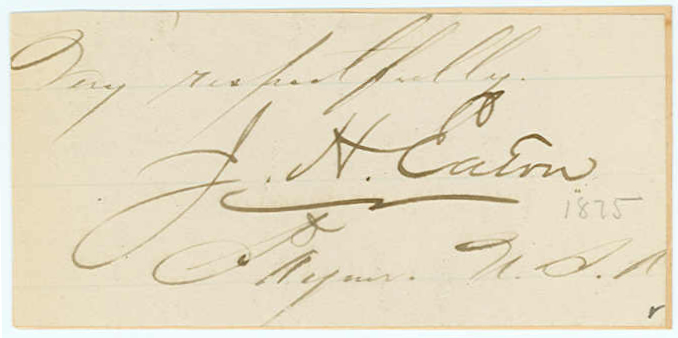 Very respectfully.
J. H. Eaton
1875
Paymr. U. S. A